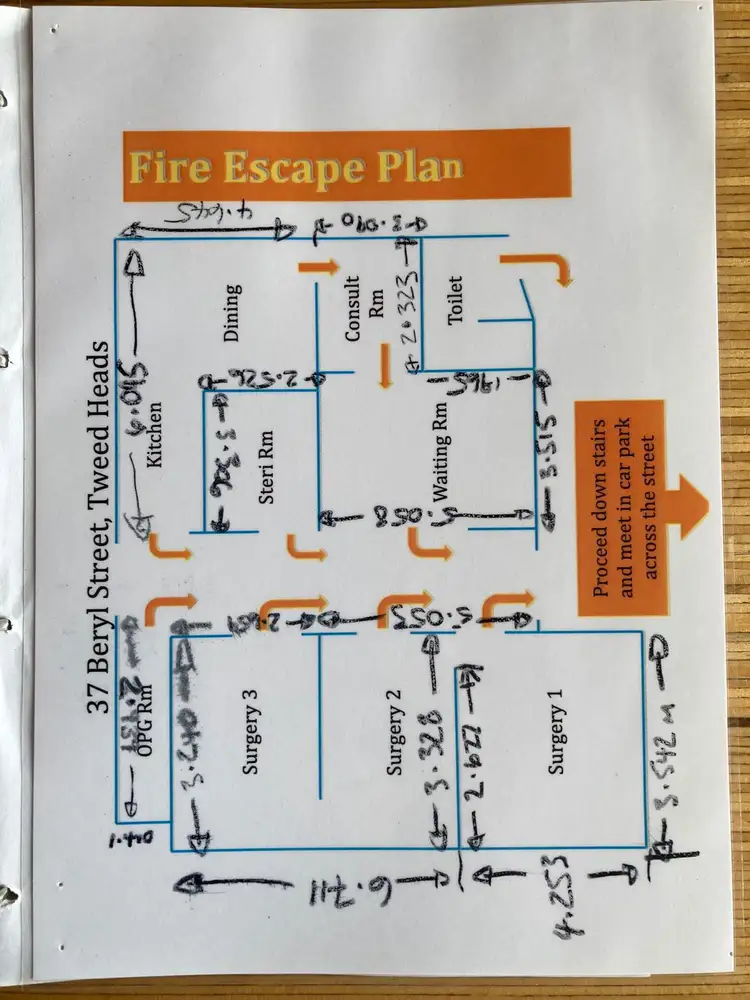 Fire Escape Plan
37 Beryl Street, Tweed Heads
3.090
2.323
Dining
Consult
Rm
Toilet
6.095
Kitchen
2.526
1.965
3.306
Steri Rm
Waiting Rm
3.515
5.058
Proceed down stairs
and meet in car park
across the street
5.055
OPG Rm
3.240
Surgery 3
Surgery 2
3.328
Surgery 1
3.542 M
6.711
4.253